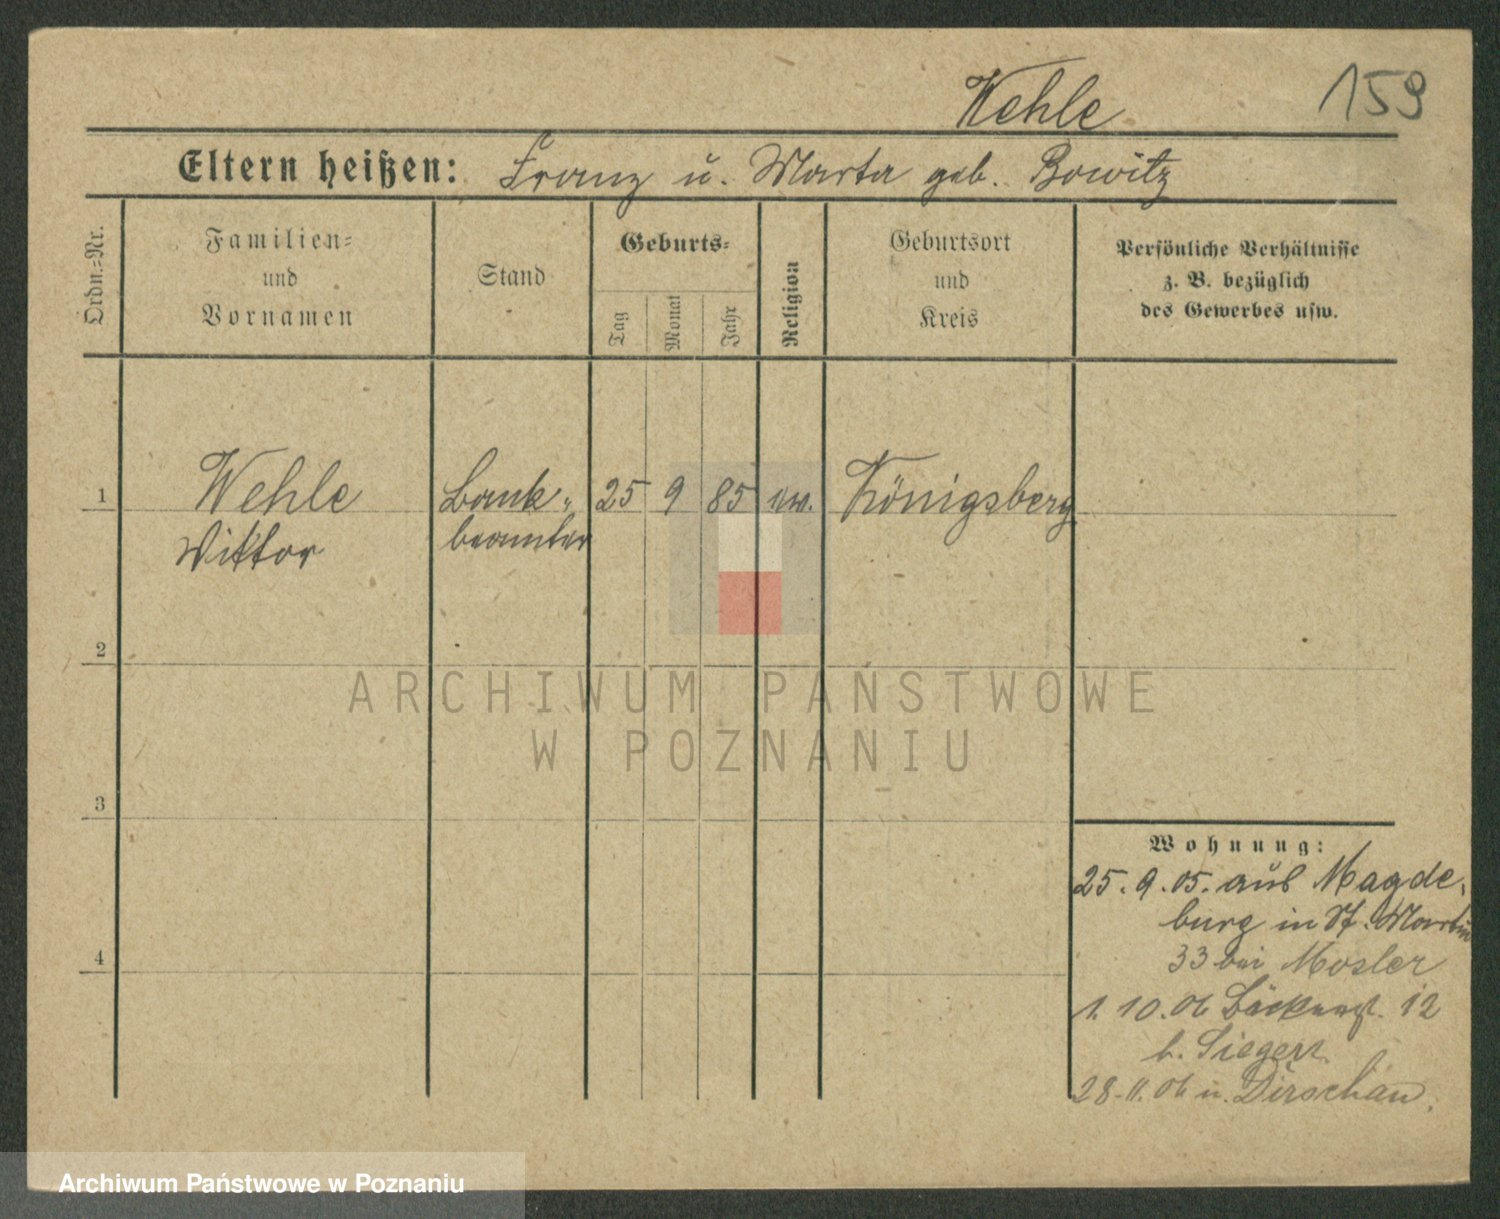 Wehle 159
Eltern heißen: Franz u. Marta geb. Bowitz
Ordn.-Nr.
Familien-
und
Vornamen
Stand
Geburts-
Tag
Monat
Jahr
Religion
Geburtsort
und
Kreis
Persönliche Verhältnisse
z. B. bezüglich
des Gewerbes usw.
1 Wehle Bank- 25 9 85 ew. Königsberg
Viktor beamter
2
3
4
Wohnung:
25. 9. 05. aus Magde-
burg in St. Martin
33 bei Mosler
1. 10. 06 Bäckerst. 12
b. Siegert
28. 11. 06 n. Dirschau.
ARCHIWUM PAŃSTWOWE
W POZNANIU
Archiwum Państwowe w Poznaniu